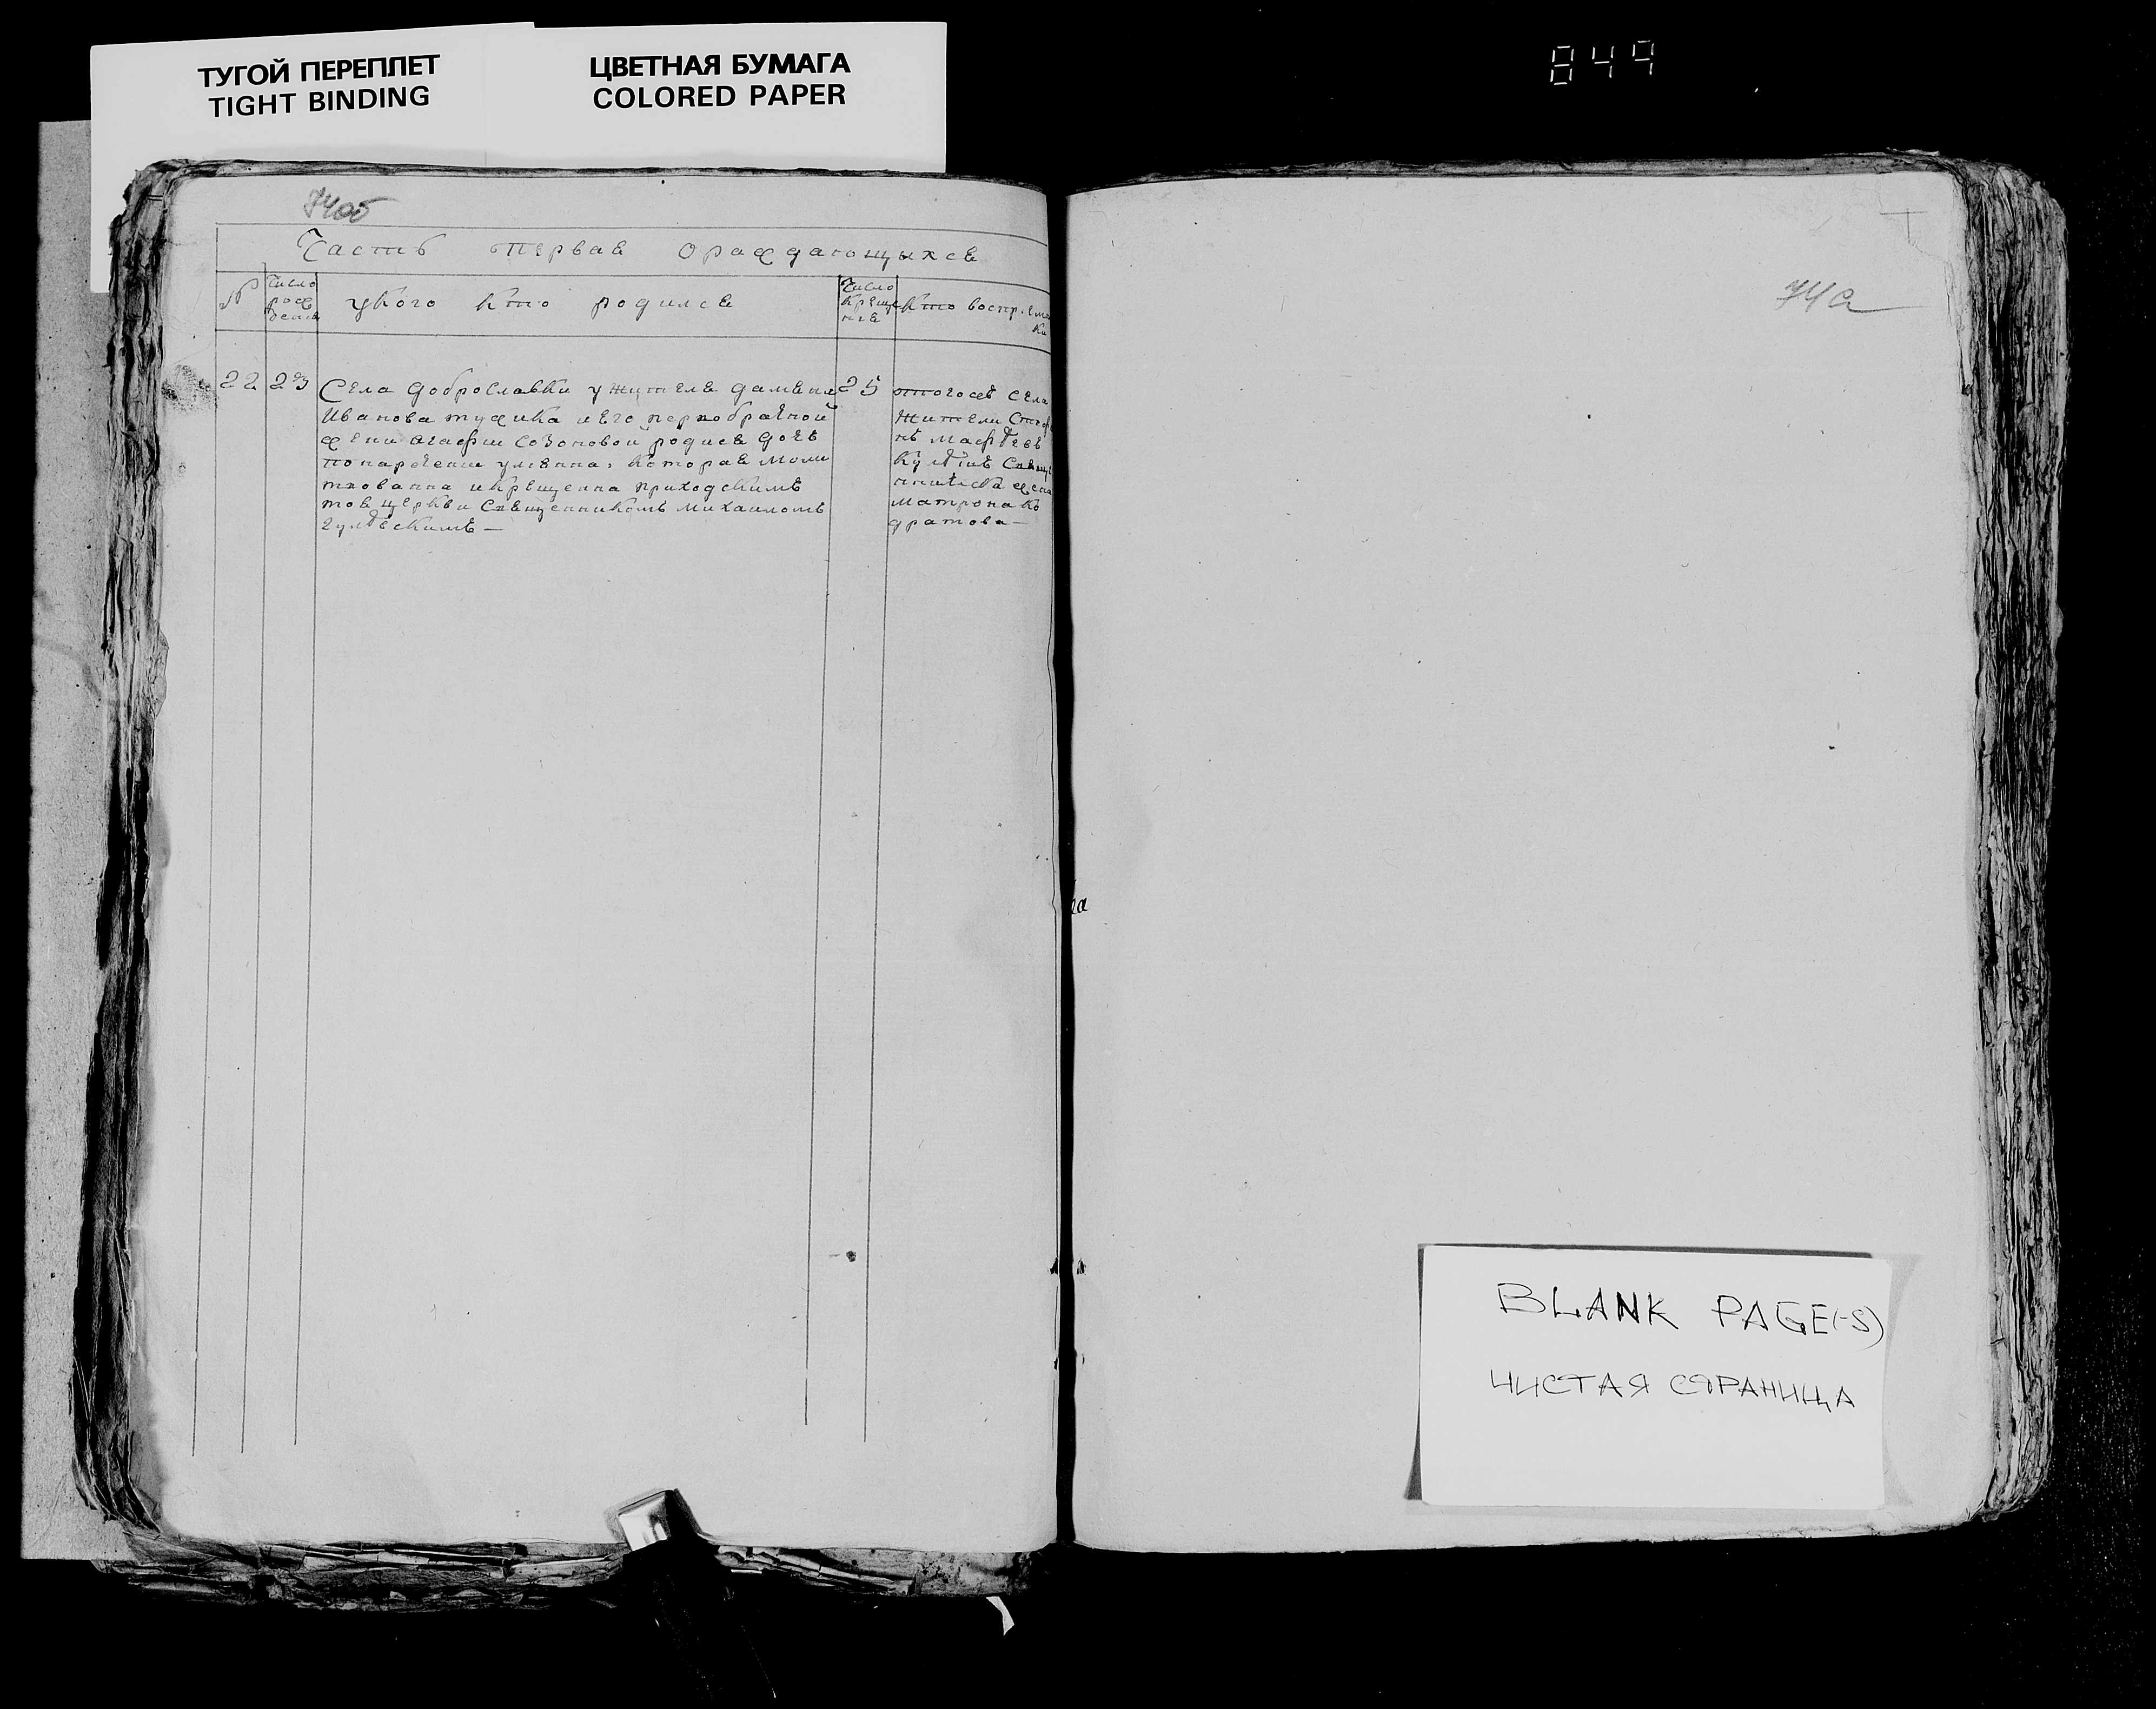 ТУГОЙ ПЕРЕПЛЕТ
TIGHT BINDING
ЦВЕТНАЯ БУМАГА
COLORED PAPER
849
74об
Часть первая ораждающыхся
№
Число
рож
дения
укого кто родился
Число
креще
ния
Кто воспр
22 23 Села доброславки ужителя
Иванова и его первобрачной
жени агафии Созоновой родися дочь
понаречении улянна, которая моли
твованна икрещенна приходскимъ
тоя церкви Священникомъ михаиломъ
25
отогожъ села
жители
матрона ко
дратова
74а
BLANK PAGE(-S)
ЧИСТАЯ СТРАНИЦА